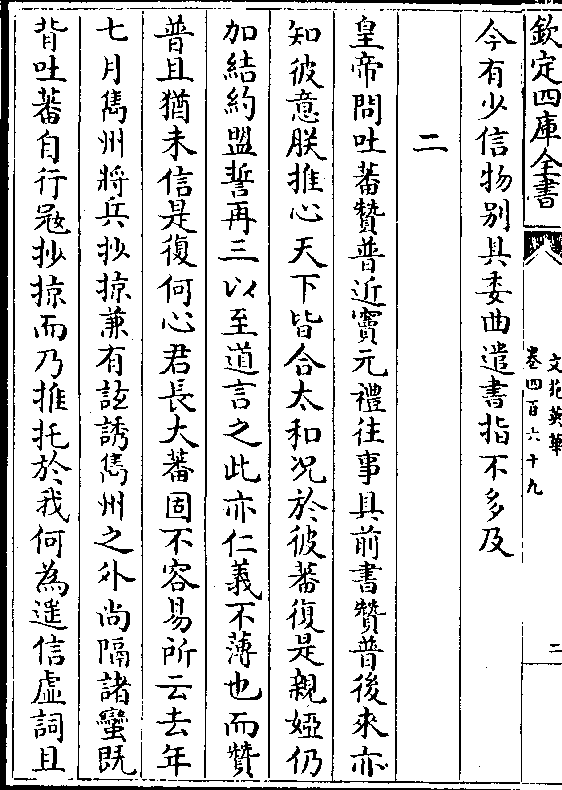 欽定四庫全書
文苑英華
卷四百六十九
二
今有少信物别具委曲遣書指不多及
二
皇帝問吐蕃贊普近竇元禮往事具前書贊普後來亦
知彼意朕推心天下皆合太和况於彼蕃復是親婭仍
加結約盟誓再三以至道言之此亦仁義不薄也而贊
普且猶未信是復何心君長大蕃固不容易所云去年
七月雋州將兵抄掠兼有詃誘雋州之外尚隔諸蠻既
背吐蕃自行冦抄掠而乃推托於我何為遥信虚詞且